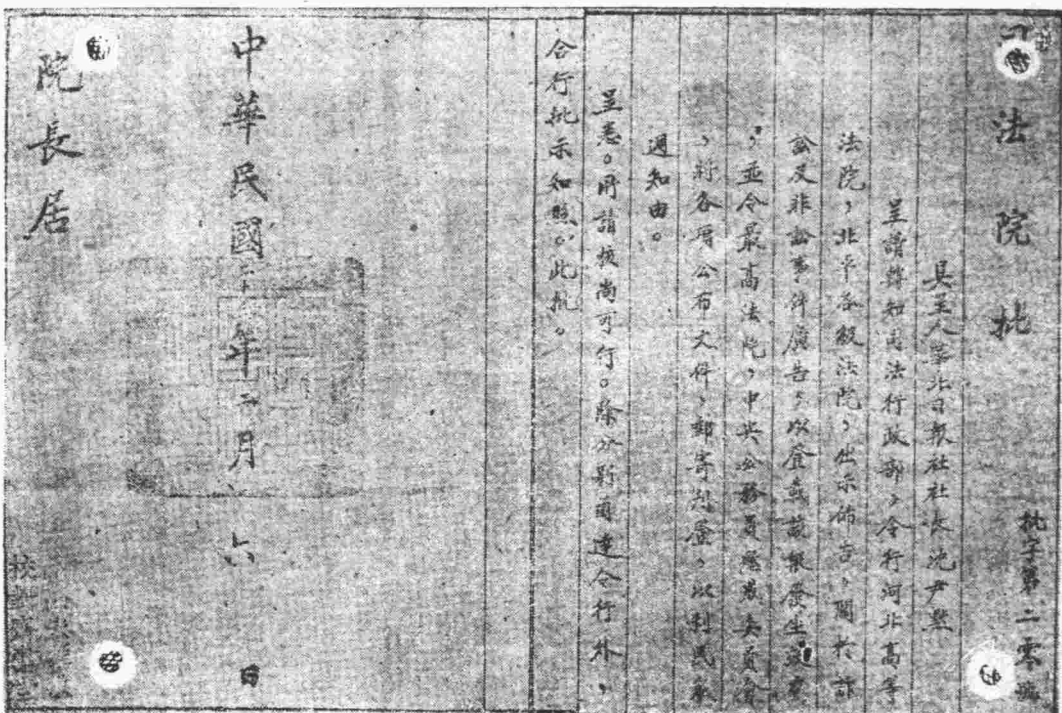 司法院批
批字第二零號
具呈人華北日報社社長沈尹默
呈請轉知司法行政部，令行河北高等
法院，北平各級法院，出示佈告，關於訴
訟及非訟事件廣告，以登載該報發生效力
，並令最高法院，中央公務員懲戒委員會
，將各項公布文件，郵寄刊登，以利民衆
週知由。
呈悉。所請核尚可行。除分別函達令行外，
合行批示知照。此批。
中華民國二十 年二月 六 日
院長居
校對